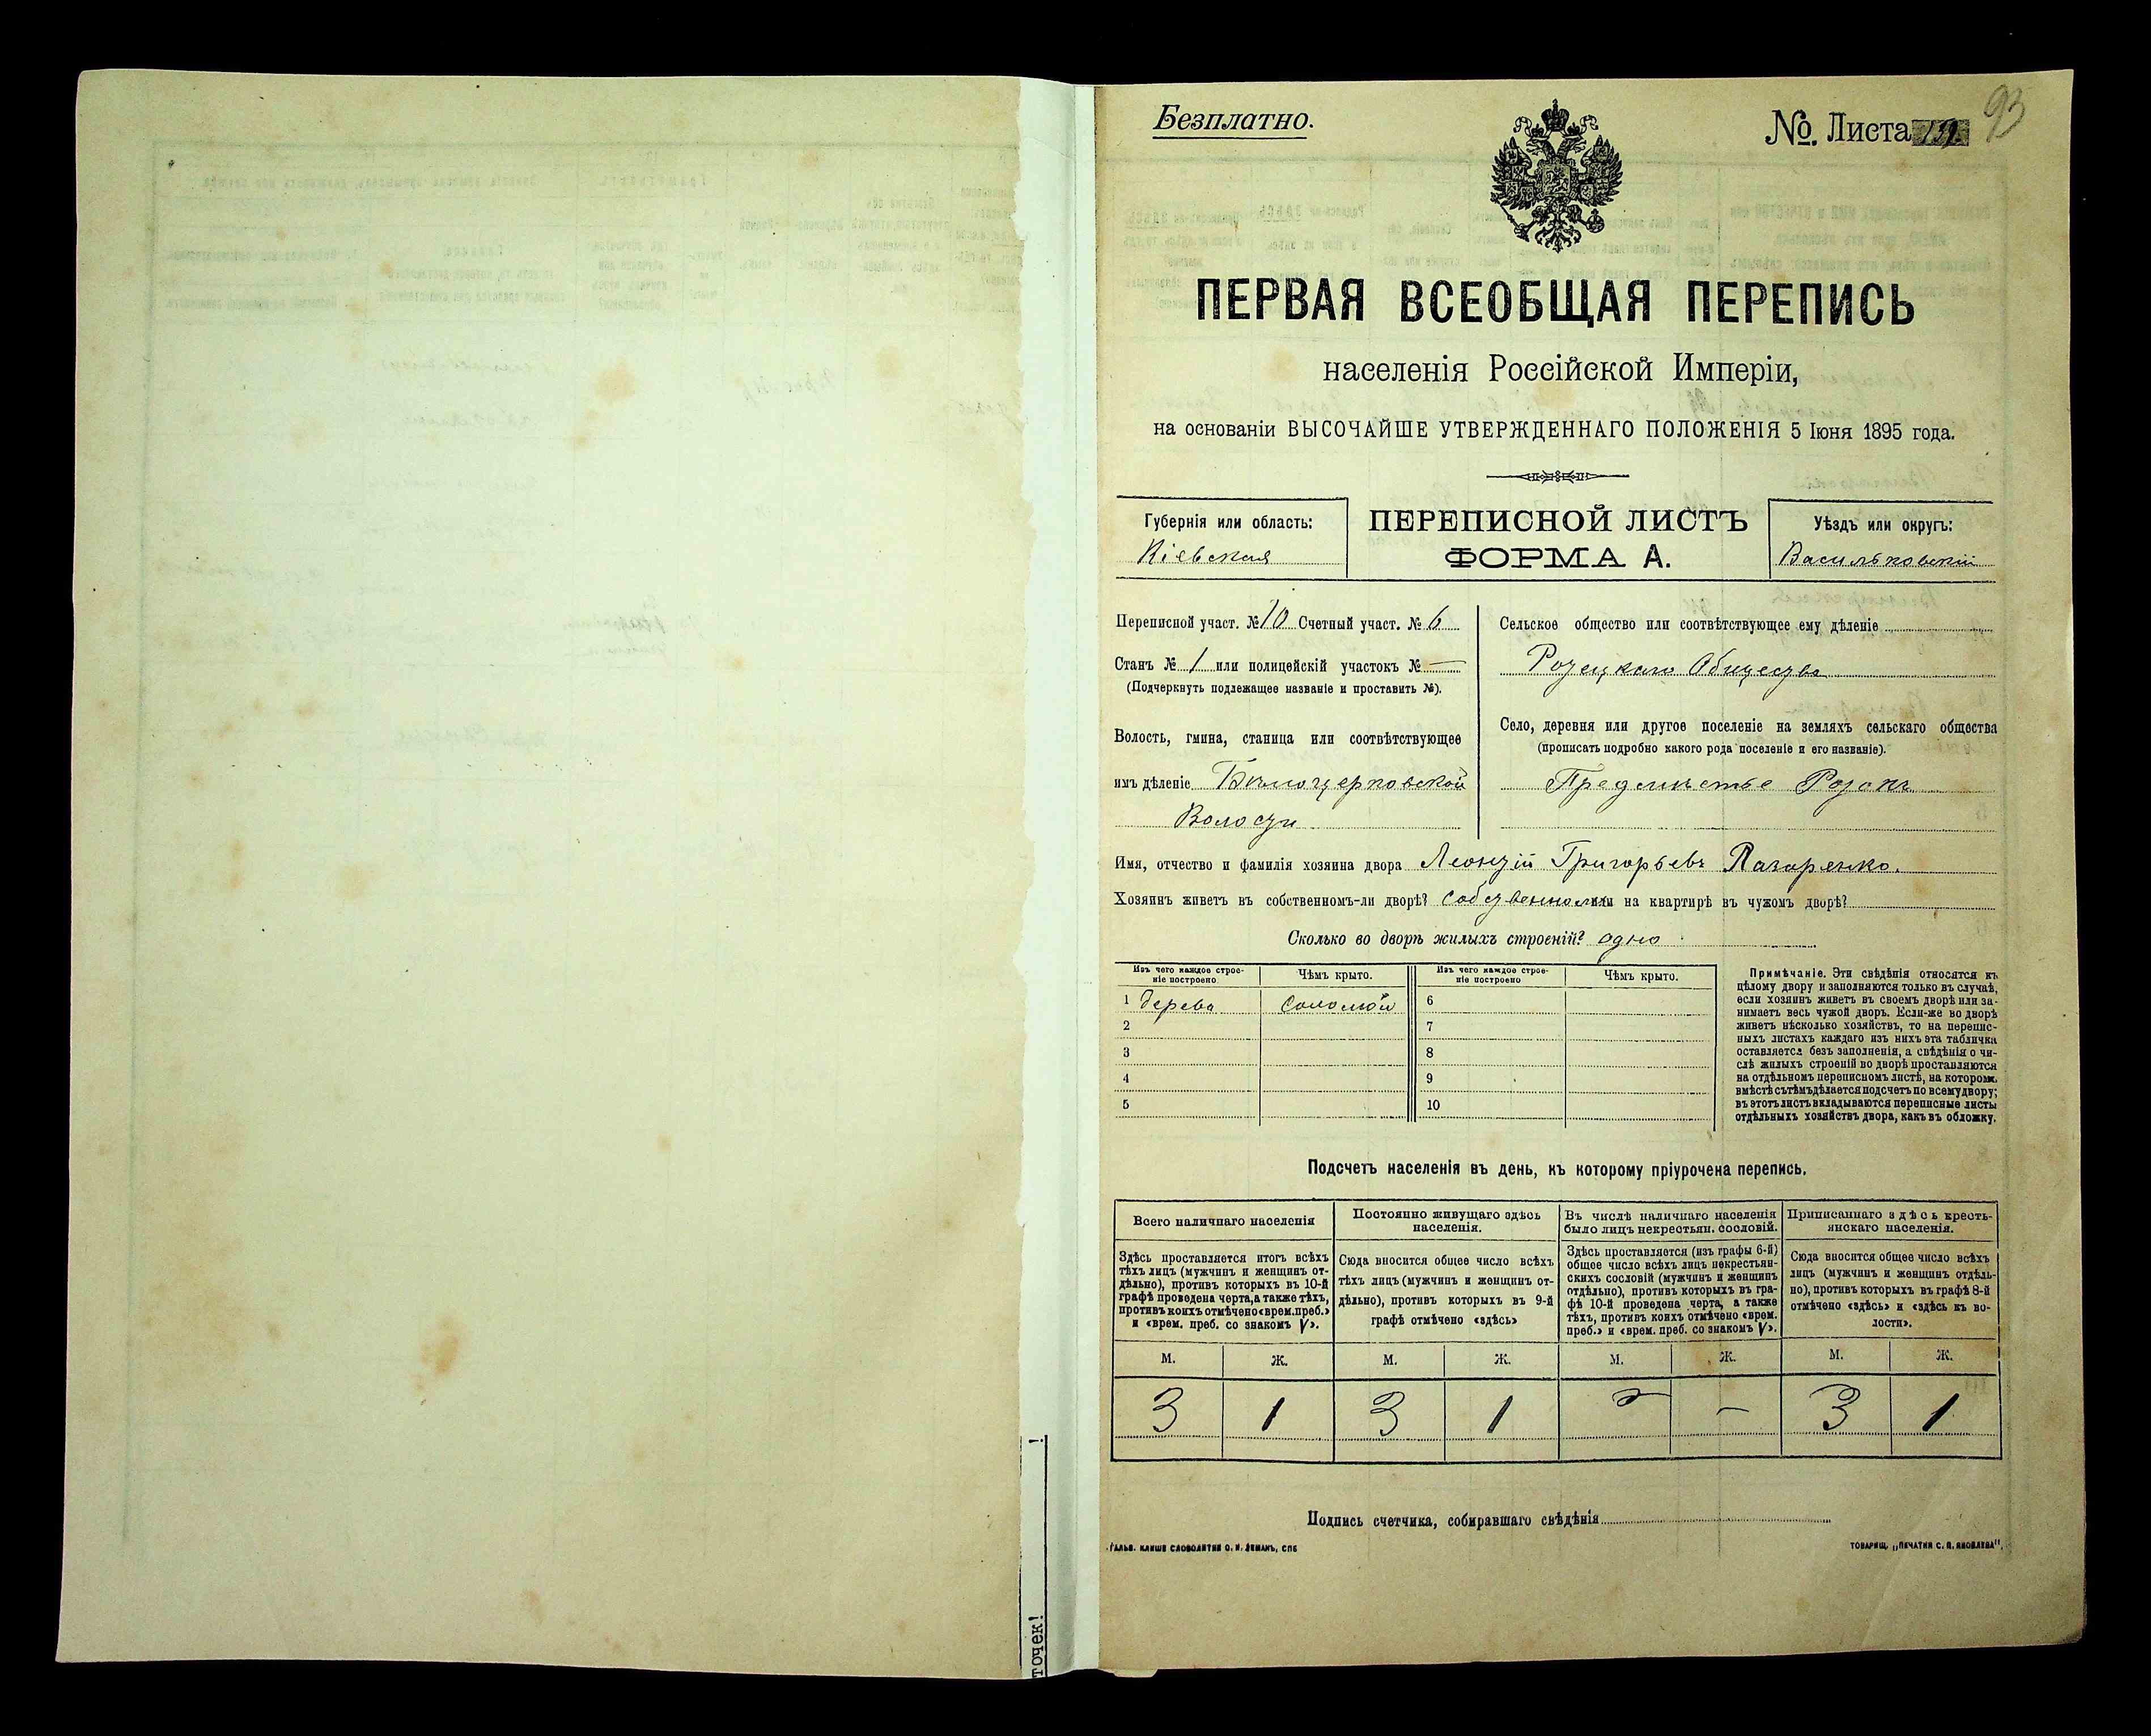 Безплатно.
№ Листа
93
ПЕРВАЯ ВСЕОБЩАЯ ПЕРЕПИСЬ
населенія Россійской Имперіи,
на основаніи ВЫСОЧАЙШЕ УТВЕРЖДЕННАГО ПОЛОЖЕНІЯ 5 Іюня 1895 года.
Губернія или область:
Кіевская
ПЕРЕПИСНОЙ ЛИСТЪ
ФОРМА А.
Уѣздъ или округъ:
Васильковскій
Переписной участ. № 10 Счетный участ. № 6
Станъ № 1 или полицейскій участокъ № —
(Подчеркнуть подлежащее названіе и проставить №).
Волость, гмина, станица или соотвѣтствующее
имъ дѣленіе Бѣлоцерковской
Волости
Сельское общество или соотвѣтствующее ему дѣленіе
Ротецкаго Общества
Село, деревня или другое поселеніе на земляхъ сельскаго общества
(прописать подробно какого рода поселеніе и его названіе).
Предмѣстье Ротокъ
Имя, отчество и фамилія хозяина двора Леонтій Григорьевъ
Хозяинъ живетъ въ собственномъ-ли дворѣ? собственномъ или на квартирѣ въ чужомъ дворѣ?
Сколько во дворѣ жилыхъ строеній? одно
Изъ чего каждое строе-
ніе построено
Чѣмъ крыто.
Изъ чего каждое строе-
ніе построено
Чѣмъ крыто.
1 дерева соломой 6
2 7
3 8
4 9
5 10
Примѣчаніе. Эти свѣдѣнія относятся къ
цѣлому двору и заполняются только въ случаѣ,
если хозяинъ живетъ въ своемъ дворѣ или за-
нимаетъ весь чужой дворъ. Если-же во дворѣ
живетъ нѣсколько хозяйствъ, то на перепис-
ныхъ листахъ каждаго изъ нихъ эта табличка
оставляется безъ заполненія, а свѣдѣнія о чи-
слѣ жилыхъ строеній во дворѣ проставляются
на отдѣльномъ переписномъ листѣ, на которомъ
вмѣстѣ съ тѣмъ дѣлается подсчетъ по всему двору;
въ этотъ листъ вкладываются переписные листы
отдѣльныхъ хозяйствъ двора, какъ въ обложку.
Подсчетъ населенія въ день, къ которому пріурочена перепись.
Всего наличнаго населенія
Постоянно живущаго здѣсь
населенія.
Въ числѣ наличнаго населенія
было лицъ некрестьян. сословій.
Приписаннаго здѣсь кресть-
янскаго населенія.
Здѣсь проставляется итогъ всѣхъ
тѣхъ лицъ (мужчинъ и женщинъ от-
дѣльно), противъ которыхъ въ 10-й
графѣ проведена черта, а также тѣхъ,
противъ коихъ отмѣчено «врем. преб.»
и «врем. преб. со знакомъ V».
Сюда вносится общее число всѣхъ
тѣхъ лицъ (мужчинъ и женщинъ от-
дѣльно), противъ которыхъ въ 9-й
графѣ отмѣчено «здѣсь»
Здѣсь проставляется (изъ графы 6-й)
общее число всѣхъ лицъ некрестьян-
скихъ сословій (мужчинъ и женщинъ
отдѣльно), противъ которыхъ въ гра-
фѣ 10-й проведена черта, а также
тѣхъ, противъ коихъ отмѣчено «врем.
преб.» и «врем. преб. со знакомъ V».
Сюда вносится общее число всѣхъ
лицъ (мужчинъ и женщинъ отдѣль-
но), противъ которыхъ въ графѣ 8-й
отмѣчено «здѣсь» и «здѣсь къ во-
лости».
М. Ж. М. Ж. М. Ж. М. Ж.
3 1 3 1 – – 3 1
Подпись счетчика, собиравшаго свѣдѣнія
ГАЛЬВ. КЛИШЕ СЛОВОЛИТНИ О. И. ЛЕМАНЪ, СПБ
ТОВАРИЩ. „ПЕЧАТНЯ С. П. ЯКОВЛЕВА".
точек!